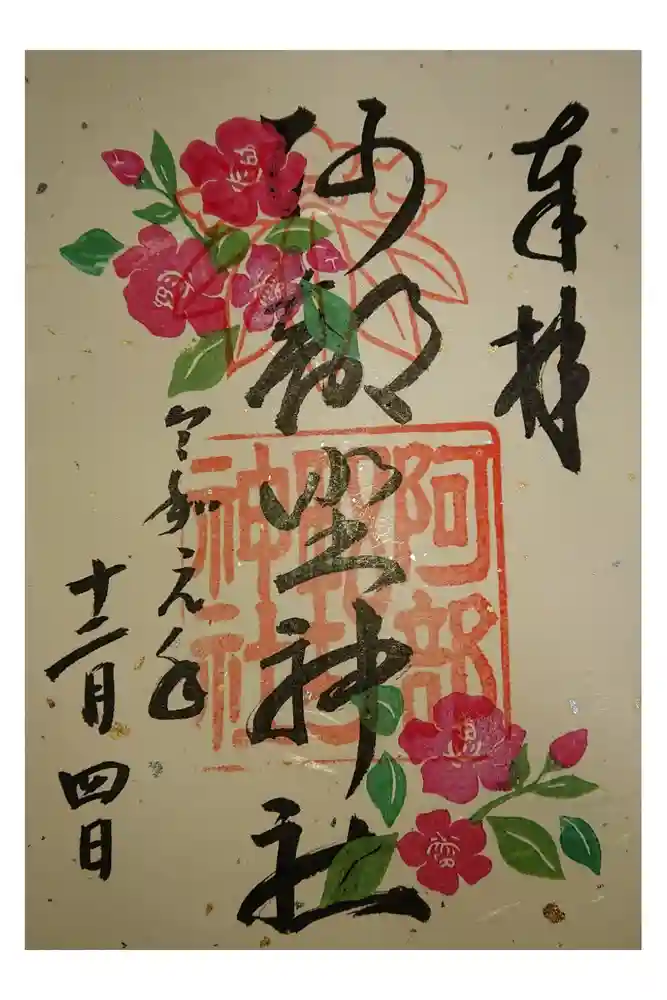 奉拝
神社
令和元年
十二月四日
阿部
神社